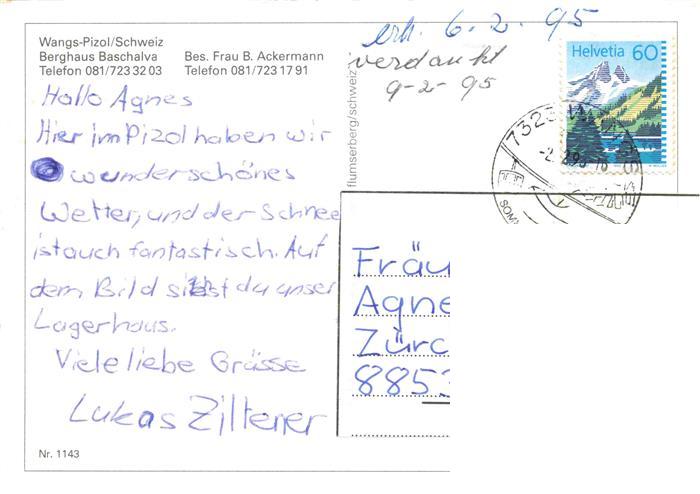 Wangs-Pizol/Schweiz
Berghaus Baschalva Bes. Frau B. Ackermann
Telefon 081/723 32 03 Telefon 081/723 17 91
erh. 6.2.95
verdankt
9-2-95
Helvetia 60
Hallo Agnes
Hier im Pizol haben wir
wunderschönes
Wetter, und der Schnee
ist auch fantastisch. Auf
dem Bild siehst du unser
Lagerhaus.
Viele liebe Grüsse
Lukas Ziltener
Nr. 1143
flumserberg/schweiz
7323
Fräu
Agne
Zürc
885